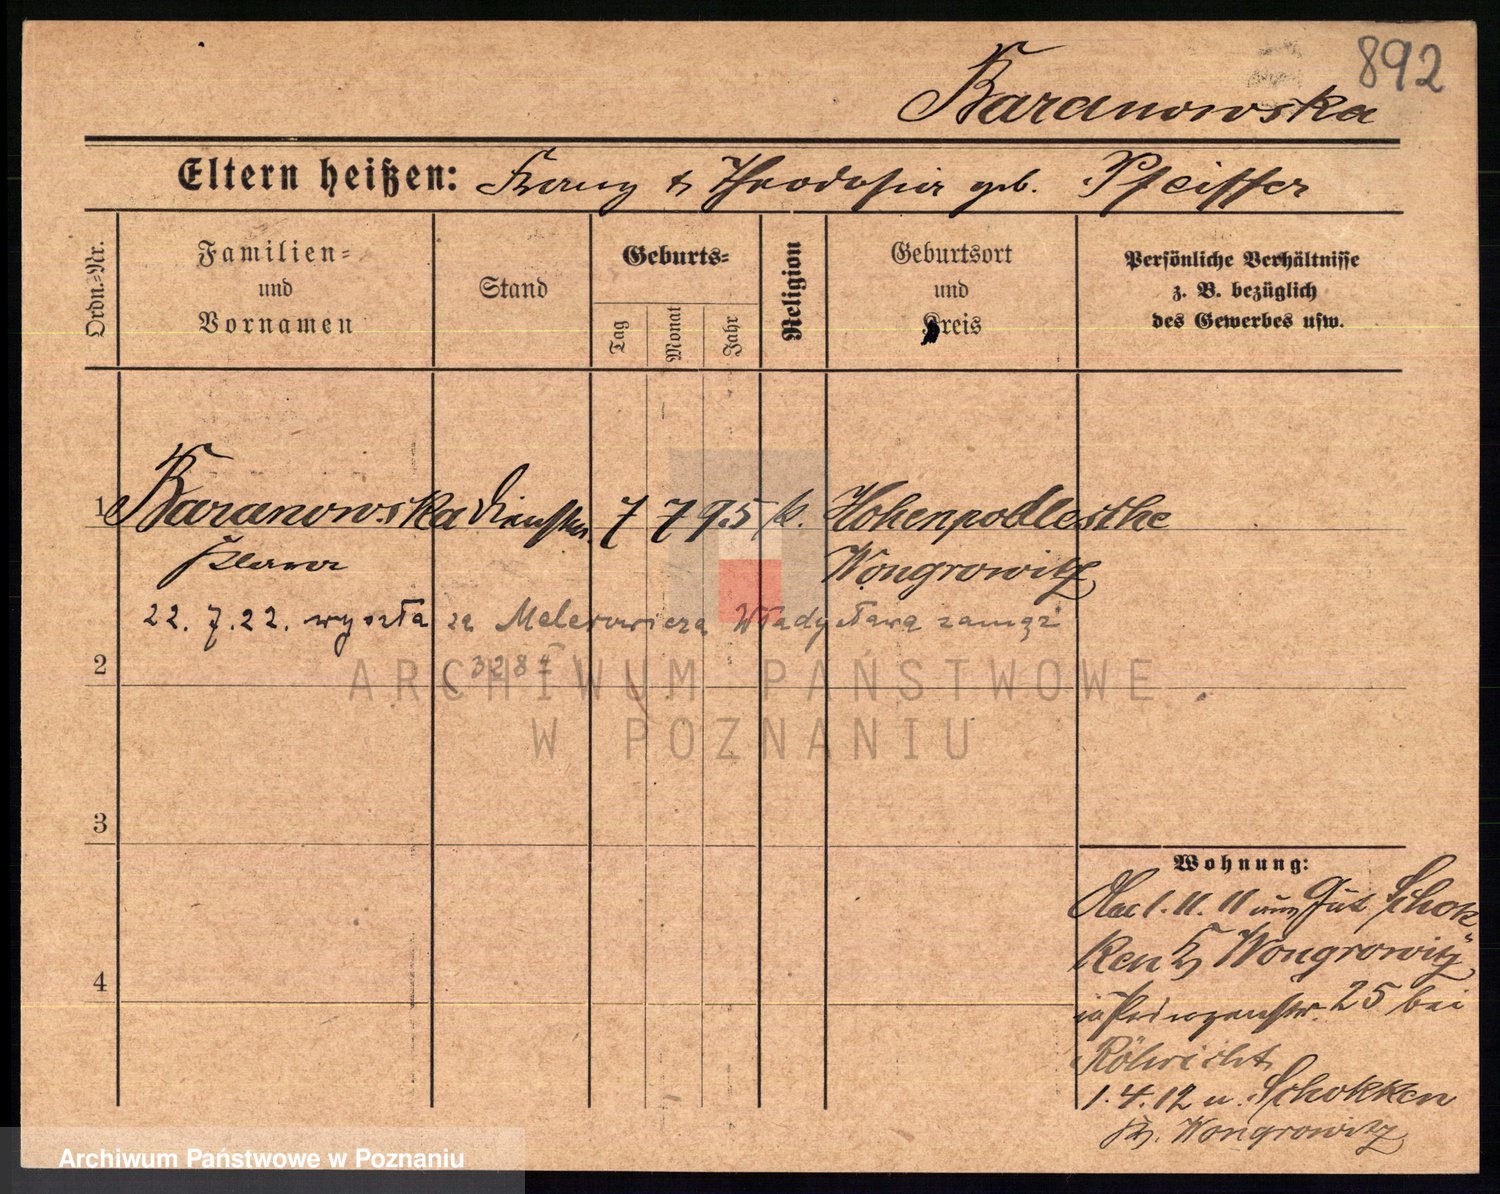 892
Baranowska
Eltern heißen: Franz & Theodosia geb. Pfeiffer
Ordn.-Nr.
Familien- und Vornamen
Stand
Geburts-
Tag
Monat
Jahr
Religion
Geburtsort und Kreis
Persönliche Verhältnisse
z. B. bezüglich
des Gewerbes usw.
1 Baranowska Dienstm. 7 7 95 k. Hohenpodlesche
Klara Wongrowitz
22. 7. 22. wyszła za Władysława zamąż
3284
2
ARCHIWUM PAŃSTWOWE
W POZNANIU
3
4
Wohnung:
1. 11. 11 Gut Schok
ken Wongrowitz
25 bei
Röhricht
1. 4. 12 n. Schokken
Kr. Wongrowitz
Archiwum Państwowe w Poznaniu